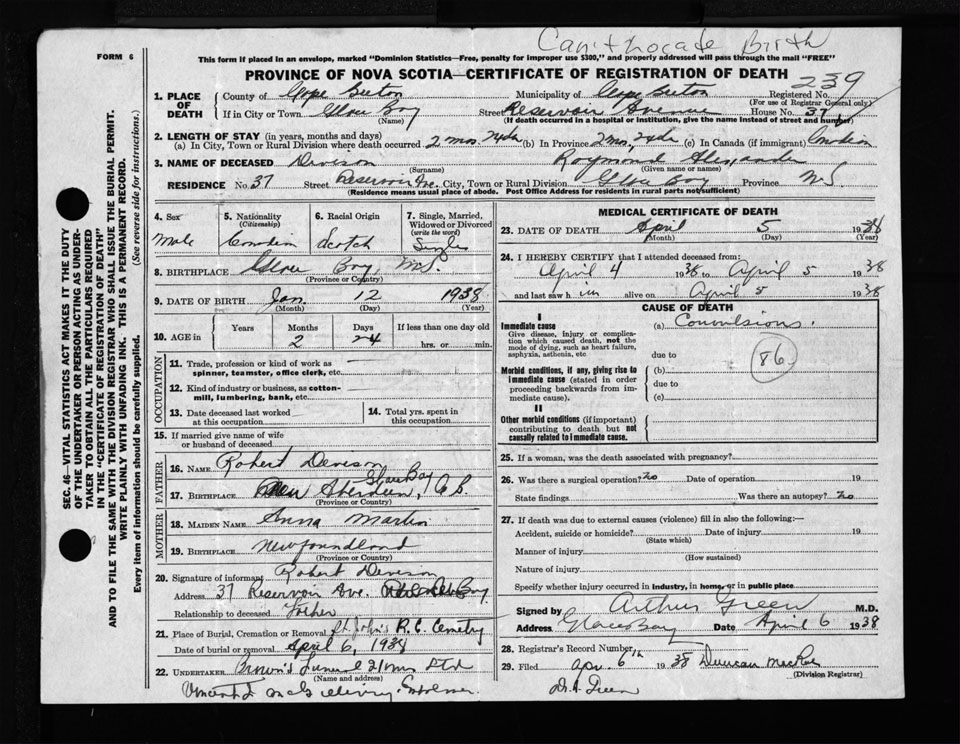 Birth
FORM 6
This form if placed in an envelope, marked "Dominion Statistics—Free, penalty for improper use $300," and properly addressed will pass through the mail "FREE"
PROVINCE OF NOVA SCOTIA—CERTIFICATE OF REGISTRATION OF DEATH
239
1. PLACE OF DEATH
County of Cape Breton Municipality of Cape Breton Registered No.
(For use of Registrar General only)
If in City or Town Glace Bay Street Reservoir Avenue House No. 37
(Name) (If death occurred in a hospital or institution, give the name instead of street and number)
2. LENGTH OF STAY (in years, months and days)
(a) In City, Town or Rural Division where death occurred 2 mos. 24 da (b) In Province 2 mos. 24 da (c) In Canada (if immigrant) Canadian
3. NAME OF DECEASED Raymond Alexander
(Surname) (Given name or names)
RESIDENCE No. 37 Street Reservoir Ave. City, Town or Rural Division Glace Bay Province N.S.
(Residence means usual place of abode. Post Office Address for residents in rural parts not sufficient)
SEC. 46—VITAL STATISTICS ACT MAKES IT THE DUTY
OF THE UNDERTAKER OR PERSON ACTING AS UNDER-
TAKER TO OBTAIN ALL THE PARTICULARS REQUIRED
IN THE "CERTIFICATE OF REGISTRATION OF DEATH"
AND TO FILE THE SAME WITH THE DIVISION REGISTRAR WHO SHALL ISSUE THE BURIAL PERMIT.
WRITE PLAINLY WITH UNFADING INK. THIS IS A PERMANENT RECORD.
Every item of information should be carefully supplied. (See reverse side for instructions.)
4. Sex
Male
5. Nationality
(Citizenship)
Canadian
6. Racial Origin
Scotch
7. Single, Married, Widowed or Divorced
(write the word)
Single
8. BIRTHPLACE Glace Bay, N.S.
(Province or Country)
9. DATE OF BIRTH Jan. 12 1938
(Month) (Day) (Year)
10. AGE in
Years Months Days If less than one day old
2 24 hrs. or min.
OCCUPATION
11. Trade, profession or kind of work as
spinner, teamster, office clerk, etc.
12. Kind of industry or business, as cotton-
mill, lumbering, bank, etc.
13. Date deceased last worked
at this occupation
14. Total yrs. spent in
this occupation
15. If married give name of wife
or husband of deceased
FATHER
16. NAME Robert
Glace Bay
17. BIRTHPLACE C.B.
(Province or Country)
MOTHER
18. MAIDEN NAME Anna Martin
19. BIRTHPLACE Newfoundland
(Province or Country)
20. Signature of informant Robert
Address 37 Reservoir Ave. Bay
Relationship to deceased Father
21. Place of Burial, Cremation or Removal St. John's R.C. Cemetry
Date of burial or removal April 6, 1938
22. UNDERTAKER Brown's Funeral Ltd
(Name and address)
Vincent Embalmer
MEDICAL CERTIFICATE OF DEATH
23. DATE OF DEATH April 5 1938
(Month) (Day) (Year)
24. I HEREBY CERTIFY that I attended deceased from:
April 4 1938 to April 5 1938
and last saw him alive on April 5 1938
CAUSE OF DEATH
I
Immediate cause
(a) Convulsions.
Give disease, injury or complica-
tion which caused death, not the
mode of dying, such as heart failure,
asphyxia, asthenia, etc
due to
86
Morbid conditions, if any, giving rise to
immediate cause (stated in order
proceeding backwards from im-
mediate cause).
(b)
due to
(c)
II
Other morbid conditions (if important)
contributing to death but not
causally related to immediate cause.
25. If a woman, was the death associated with pregnancy?
26. Was there a surgical operation? no Date of operation 19
State findings Was there an autopsy? no
27. If death was due to external causes (violence) fill in also the following:—
Accident, suicide or homicide? Date of injury 19
(State which)
Manner of injury
(How sustained)
Nature of injury
Specify whether injury occurred in industry, in home, or in public place
Signed by Arthur Green M.D.
Address Glace Bay Date April 6 1938
28. Registrar's Record Number
29. Filed Apr. 6th 1938 Duncan MacRae
(Division Registrar)
Dr. A. Green